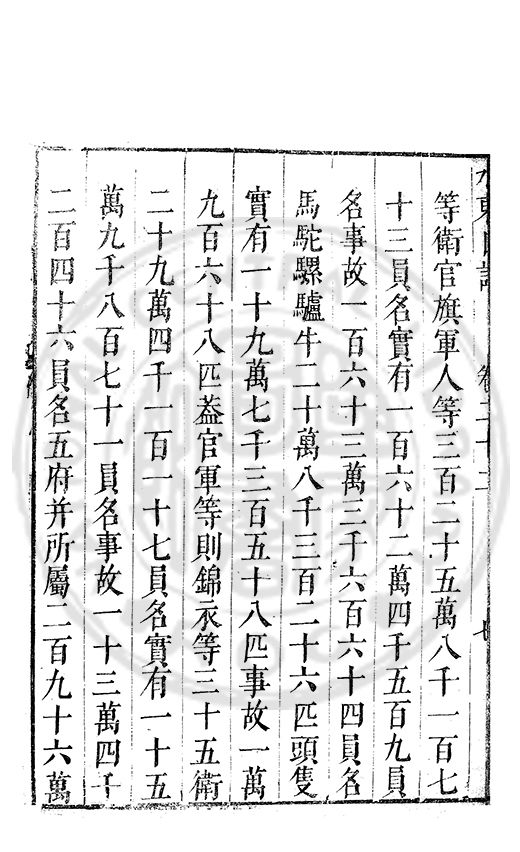 等衛官旗軍人等三百二十五萬八千一百七
十三員名實有一百六十二萬四千五百九員
名事故一百六十三萬三千六百六十四員名
馬駝騾驢牛二十萬八千三百二十六匹頭隻
實有一十九萬七千三百五十八匹事故一萬
九百六十八匹葢官軍等則錦衣等三十五衛
二十九萬四千一百一十七員名實有一十五
萬九千八百七十一員名事故一十三萬四千
二百四十六員名五府并所屬二百九十六萬